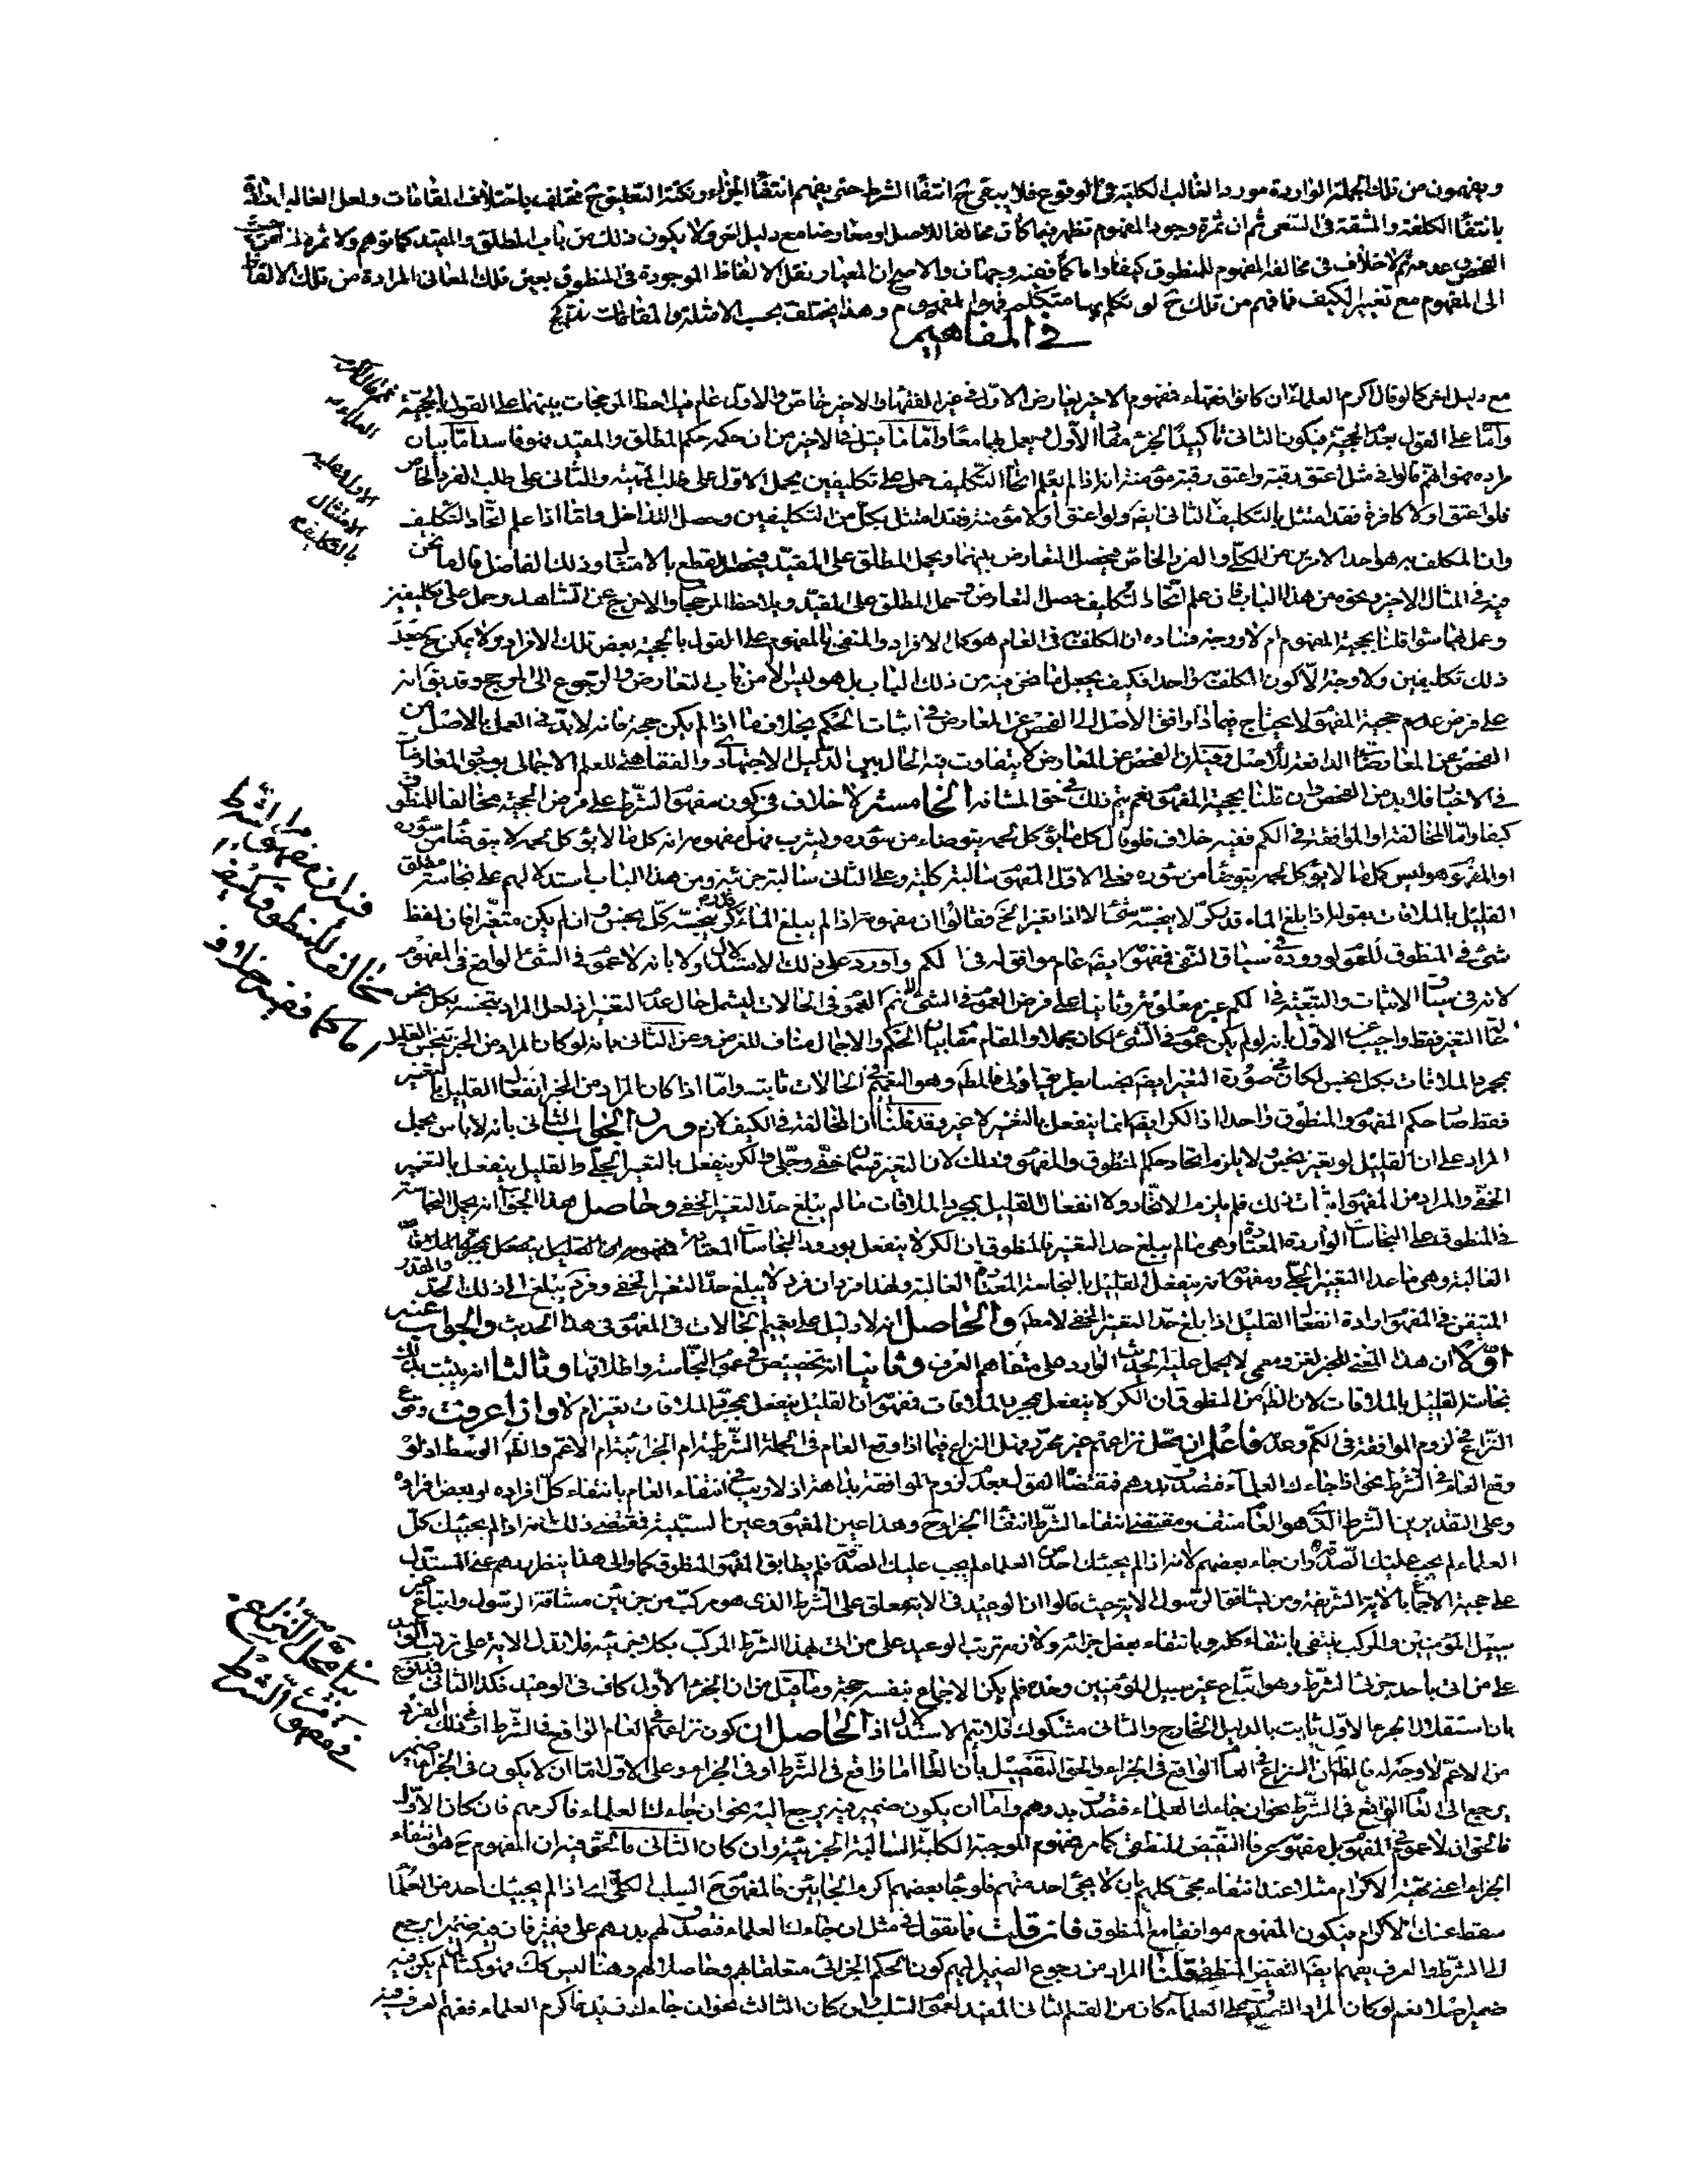 ويفهمون من تلك الجملة الواردة مورد الغالب الكلية في الوقوع فلا يبقى ح انتفاء الشرط حتى يفهم انتفاء الجزاء ونكتة التعليق ح مختلف باختلاف المقامات ولعل الغالب
بانتفاء الكلفة والمشقة في ثم ان ثمرة وجود المفهوم تظهر فيما كان مخالفا للاصل او معارضا مع دليل اخر ولا يكون ذلك من باب المطلق والمقيد كما توهم ولا ثمرة
لا خلاف في مخالفة المفهوم للمنطوق كيفا واما كما ففيه وجهان والاصح ان المعيار نقل الالفاظ الموجودة في المنطوق بعين تلك المعاني المرادة من تلك الالفاظ
الى المفهوم مع تغيير الكيف فما فهم من تلك ح لو تكلم بها متكلم فهو المفهوم وهذا يختلف بحسب الامثلة والمقامات
في المفاهيم
مع دليل اخر كما لو قال اكرم العلماء ان كانوا فقهاء فمفهوم الاخير يعارض الاول في غير الفقهاء والاخير خاص والاول عام فيلاحظ المرجحات بينهما على القول بالحجية
واما على القول بعدم الحجية فيكون الثاني تاكيدا لجزء مفاد الاول فيعمل بهما معا واما ما قيل في الاخير من ان حكمه حكم المطلق والمقيد فهو فاسد اما بيان
مراده فهو انهم قالوا في مثل اعتق رقبة واعتق رقبة مؤمنة انه اذا لم يعلم اتحاد التكليف حمل على تكليفين يحمل الاول على طلب المهية والثاني على طلب الفرد الخاص
فلو اعتق اولا كافرة فقد امتثل بالتكليف الثاني ايضا ولو اعتق اولا مؤمنة فقد امتثل بكل من التكليفين وحصل التداخل واما اذا علم اتحاد التكليف
وان المكلف به هو احد الامرين من الكلي والفرد الخاص فيحصل التعارض بينهما ويحمل المطلق على المقيد فيحصل القطع بالامتثال وذلك الفاضل قال ما نحن
فيه في المثال الاخير ونحوه من هذا الباب فان علم اتحاد التكليف حصل التعارض وحمل المطلق على المقيد ويلاحظ المرجح والاخرج عن وحمل على تكليفين
وعمل بهما سواء قلنا بحجية المفهوم ام لا ووجه فساده ان المكلف به في العام هو كل الافراد والمنفى بالمفهوم على القول بالحجية بعض تلك الافراد ولا يمكن ح
ذلك تكليفين ولا وجه الا كون المكلف به واحدا فكيف يجعل ما نحن فيه من ذلك الباب بل هو ليس الا من باب التعارض والرجوع الى المرجح وقد يتوهم انه
على فرض عدم حجية المفهوم لا يحتاج فيما اذا وافق الاصل الى الفحص عن المعارض في اثبات الحكم بخلاف ما اذا لم يكن حجة فانه لا بد في العمل بالاصل من
الفحص عن المعارضات الدافعة للاصل وفيه ان الفحص عن المعارض لا يتفاوت فيه الحال بين الدليل الاجتهادي والفقاهتي للعلم الاجمالي بوجود المعارضات
في الاخبار فلا بد من الفحص وان قلنا بحجية المفهوم نعم يتم ذلك في حق المشافه الخامسة لا خلاف في كون مفهوم الشرط على فرض الحجية مخالفا للمنطوق
كيفا واما المخالفة او الموافقة في الكم ففيه خلاف فلو قال كل ما يؤكل لحمه يتوضأ من سؤره ويشرب فهل مفهومه انه كل ما لا يؤكل لحمه لا يتوضأ من سؤره
او المفهوم هو ليس كل ما لا يؤكل لحمه يتوضأ من سؤره فعلى الاول المفهوم سالبة كلية وعلى الثاني سالبة جزئية ومن هذا الباب استدلالهم على نجاسة مطلق
القليل بالملاقات بقوله اذا بلغ الماء قدر كر لا ينجسه شئ الا اذا تغير الخ فقالوا ان مفهومه اذا لم يبلغ الماء قدر كر ينجسه كل نجس وان لم يكن متغيرا فان لفظ
شئ في المنطوق للعموم لوروده في سياق النفي فمفهومه ايضا عام موافق له في الكم واورد على ذلك الاستدلال اولا بانه لا عموم في الشئ الواقع في المفهوم
لانه في سياق الاثبات والتبعية في الكم غير معلومة وثانيا على فرض العموم في الشئ العموم في الحالات ليشمل حال عدم التغير اذ لعل المراد ينجسه بكل نجس
حال التغير فقط واجيب عن الاول بانه لو لم يكن عموم في الشئ لكان مجملا والمقام مقام بيان الحكم والاجمال مناف للغرض وعن الثاني بانه لو كان المراد من الخبر تنجس القليل
بمجرد الملاقات بكل نجس لكان في صورة التغير ايضا نجسا بطريق اولى فالمط وهو التعميم في الحالات ثابتة واما اذا كان المراد من الخبر انفعال القليل بالتغير
فقط صار حكم المفهوم والمنطوق واحدا اذ الكر ايضا انما ينفعل بالتغير لا غير وقد قلنا ان المخالفة في الكيف لازم ورد الجواب الثاني بانه لا باس بحمل
المراد على ان القليل لو تغير نجس ولا يلزم اتحاد حكم المنطوق والمفهوم وذلك لان التغير قسمان خفي وجلي والكر ينفعل بالتغير الجلي والقليل ينفعل بالتغير
الخفي والمراد من المفهوم اثبات ذلك فلم يلزم الاتحاد ولا انفعال القليل بمجرد الملاقات ما لم يبلغ حد التغير الخفي وحاصل هذا الجواب انه يحمل النجاسة
في المنطوق على النجاسات الواردة المعتادة وهي ما لم يبلغ حد التغير فالمنطوق ان الكر لا ينفعل بورود النجاسات المعتادة فمفهومه ان القليل ينفعل
الغالبة وهي ما عدا التغير الجلي ومفهومه انه ينفعل القليل بالنجاسة المعتادة الغالبة ولهذا فردان فرد لا يبلغ حد التغير الخفي وفرد يبلغ الى ذلك الحد والقدر
المتيقن في المفهوم ارادة انفعال القليل اذا بلغ حد التغير الخفي لا مطلقا والحاصل انه لا دليل على تعميم الحالات في المفهوم في هذا الحديث والجواب عنه
اولا ان هذا المعنى للخبر لغز ومعمى لا يحمل عليه الحديث الوارد على متفاهم العرف وثانيا انه تخصيص في عموم النجاسة واطلاقها وثالثا انه يثبت بذلك
نجاسة القليل بالملاقات لان الظ من المنطوق ان الكر لا ينفعل بمجرد الملاقات فمفهومه ان القليل ينفعل بمجرد الملاقات تغير ام لا واذا عرفت وقوع
النزاع في لزوم الموافقة في الكم وعدمه فاعلم ان محل نزاعهم غير محرر فهل النزاع فيما اذا وقع العام في الجملة الشرطية ام الجزائية ام الاعم والظ الوسط اذ لو
وقع العام في الشرط نحو اذا جاءك العلماء فتصدق بدرهم فمقتضى القول بعدم لزوم الموافقة بداهة اذ لا ريب في انتفاء العام بانتفاء كل افراده او بعض افراده
وعلى التقديرين الشرط الذي هو العام منتف ومقتضى انتفاء الشرط انتفاء الجزاء ح وهذا عين المفهوم وعين السببية فمقتضى ذلك انه اذا لم يجيئك كل
العلماء لم يجب عليك التصدق وان جاء بعضهم لا انه اذا لم يجيئك احد من العلماء لم يجب عليك التصدق فلم يطابق المفهوم المنطوق كما والى هذا ينظر ردهم على المستدل
على حجية الاجماع بالاية الشريفة ومن يشاقق الرسول الاية حيث قالوا ان الوعيد في الاية معلق على الشرط الذي هو مركب من جزئين مشاقة الرسول واتباع غير
سبيل المؤمنين والمركب ينتفي بانتفاء كله وبانتفاء بعض جزائه ولازمه ترتب الوعيد على من اتى بهذا الشرط المركب بكلا جزئيه فلا تدل الاية على ترتب الوعيد
على من اتى باحد جزئي الشرط وهو اتباع غير سبيل المؤمنين وحده فلم يكن الاجماع بنفسه حجة وما قيل من ان الجزء الاول كاف في الوعيد فكذا الثاني مدفوع
بان استقلال الجزء الاول ثابت بالدليل الخارج والثاني مشكوك فلا يتم الاستدلال اذ الحاصل ان كون نزاعهم في العام الواقع في الشرط او في ذلك الفرد
من الاعم لا وجه له فالظ ان النزاع في العام الواقع في الجزاء والحق التفصيل بان العام اما واقع في الشرط او في الجزاء وعلى الاول اما ان لا يكون في الجزاء ضمير
يرجع الى العام الواقع في الشرط نحو ان جاءك العلماء فتصدق بدرهم واما ان يكون ضمير فيه يرجع اليه نحو ان جاءك العلماء فاكرمهم فان كان الاول
فالحق ان لا عموم في المفهوم بل مفهومه عرفا النقيض المنطقي كما مر فمفهوم الموجبة الكلية السالبة الجزئية وان كان الثاني فالحق فيه ان المفهوم ح هو انتفاء
الجزاء اعني الاكرام مثلا عند انتفاء مجئ كلهم بان لا يجئ احد منهم فلو جاء بعضهم اكرم الجائين فالمفهوم ح السلب الكلي اي اذا لم يجيئك احد من العلماء
سقط عنك الاكرام فيكون المفهوم موافقا مع المنطوق فان قلت فما تقول في مثل ان جاءك العلماء فتصدق لهم بدرهم على فقير فان فيه ضميرا يرجع
الى الشرط والعرف يفهم ايضا النقيض المنطقي قلنا المراد من رجوع الضمير اليهم كون الحكم الجزائي متعلقا بهم وحاصلا لهم وهنا ليس كك فهو كمثال لم يكن فيه
ضمير اصلا نعم لو كان المراد التصدق على العلماء كان من القسم الثاني المفيد لعموم السلب وان كان الثالث نحو ان جاءك زيد فاكرم العلماء ففهم العرف فيه
في ان مفهوم الشرط
مخالف للمنطوق كيفا
اما كما ففيه خلاف
بيان محل النزاع
في مفهوم الشرط